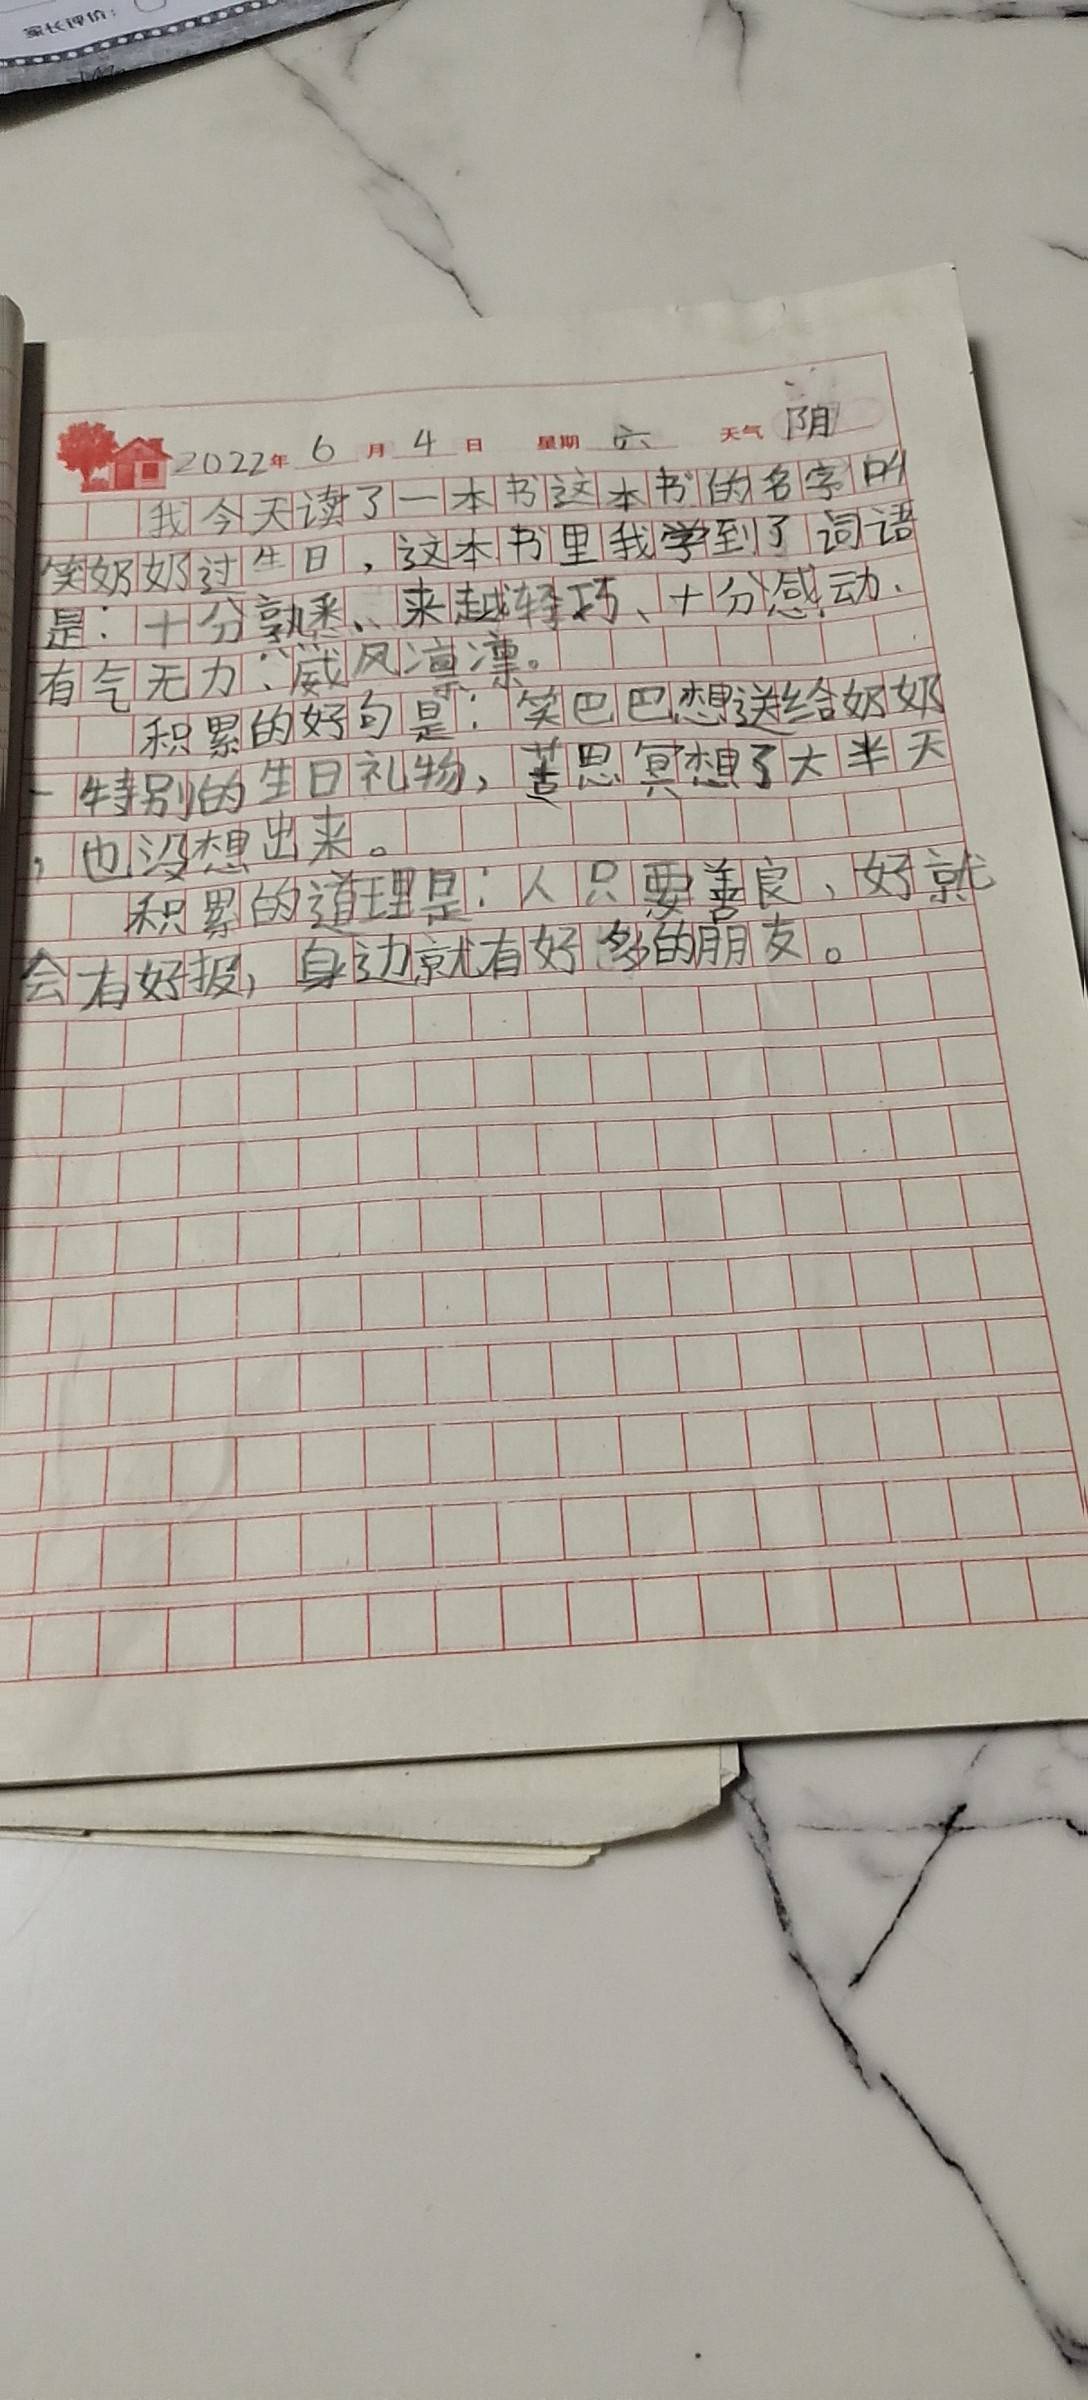 家长评价：
2022年 6 月 4 日 星期 六 天气 阴
我今天读了一本书这本书的名字叫
笑奶奶过生日，这本书里我学到了词语
是：十分熟悉、来越轻巧、十分感动、
有气无力、威风凛凛。
积累的好句是：笑巴巴想送给奶奶
一特别的生日礼物，苦思冥想了大半天
，也没想出来。
积累的道理是：人只要善良，好就
会有好报，身边就有好多的朋友。